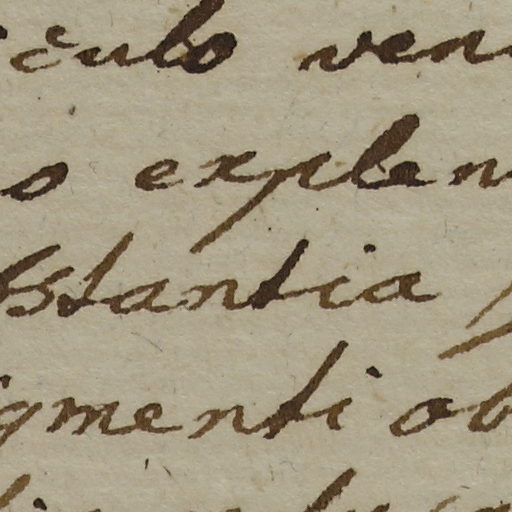 iculo ven
o explen
bstantia
igmenti ob